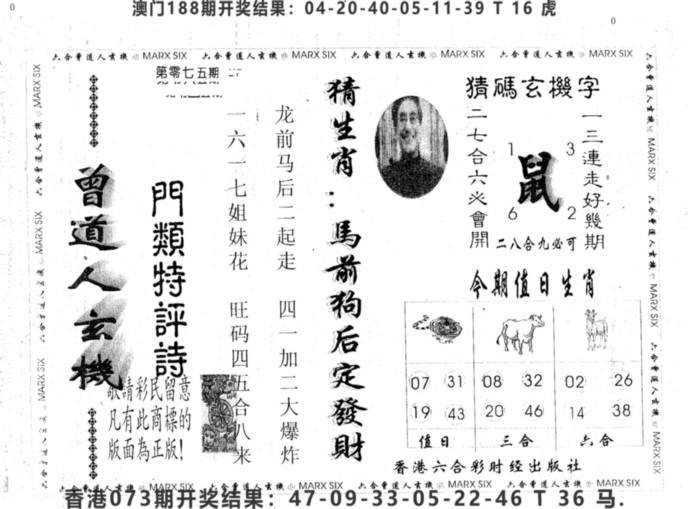 澳门188期开奖结果：04-20-40-05-11-39 T 16 虎
六合曾道人玄機 MARX SIX
第零七五期
曾道人玄機
門類特評詩
敬請彩民留意
凡有此商標的
版面為正版！
一六一七姐妹花 旺码四五合八来
龙前马后二起走 四一加二大爆炸
猜生肖：馬前狗后定發財
猜碼玄機字
二七合六必會開
一三連走好幾期
1 3
鼠
6 2
二八合九必可
今期值日生肖
07 31 08 32 02 26
19 43 20 46 14 38
值日 三合 六合
香港六合彩财经出版社
香港073期开奖结果：47-09-33-05-22-46 T 36 马.